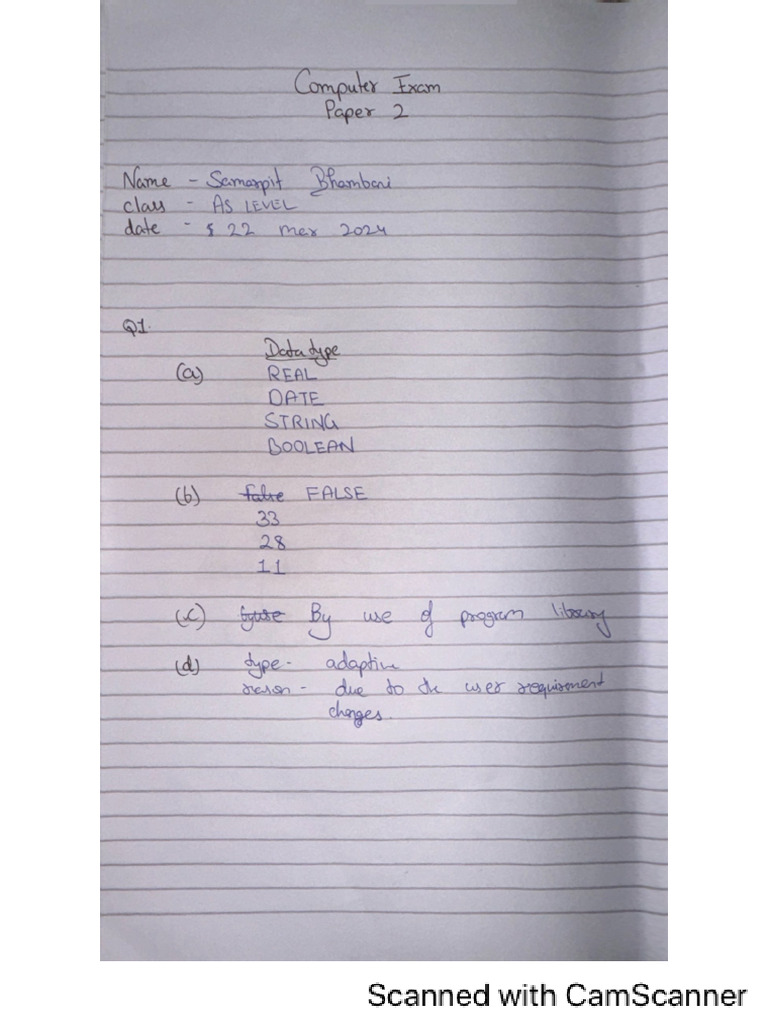 Computer Exam
Paper 2
Name - Samarpit Bhambani
class - AS LEVEL
date - 22 mar 2024
Q1.
Data type
(a) REAL
DATE
STRING
BOOLEAN
(b) false FALSE
33
28
11
(c) By use of program library
(d) type - adaptive
reason - due to the user requirement
changes.
Scanned with CamScanner